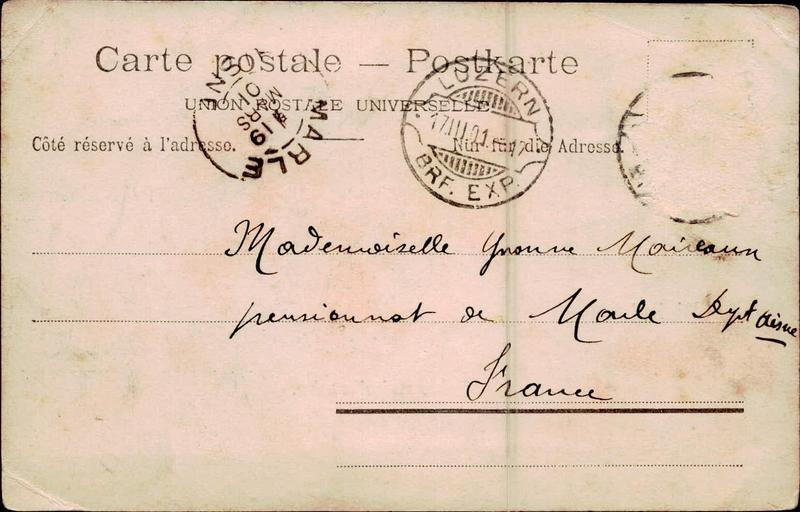 Carte postale — Postkarte
UNION POSTALE UNIVERSELLE
Côté réservé à l'adresse.
Nur für die Adresse.
MARLE
19
MARS
01
LUZERN
17.III.01
BRF. EXP.
Mademoiselle Yvonne
pensionnat de Marle Dept Aisne
France